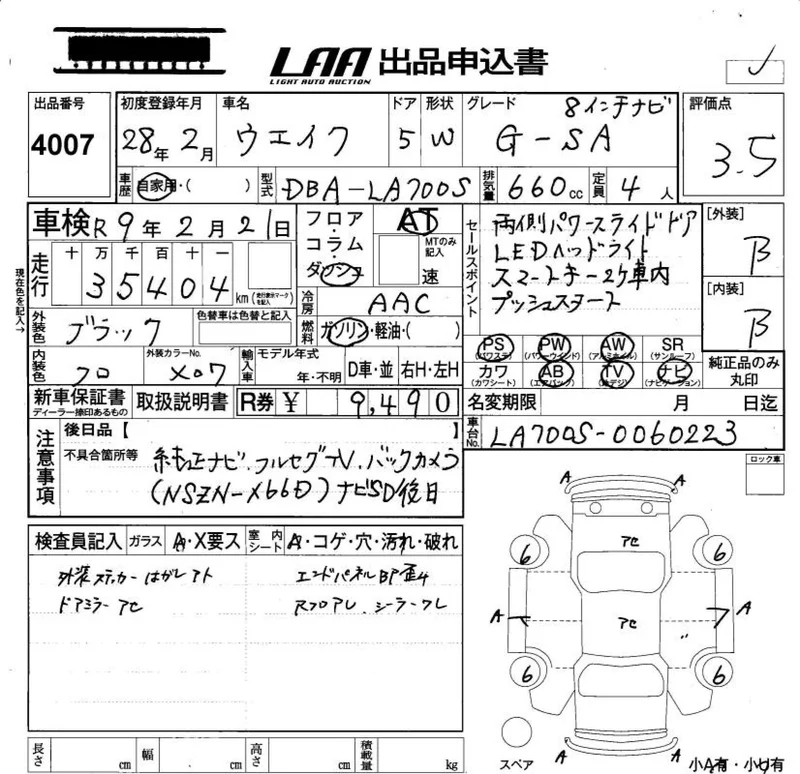 LAA 出品申込書
LIGHT AUTO AUCTION
出品番号 4007
初度登録年月 28年 2月
車名 ウエイク
ドア 5 形状 W
グレード 8インチナビ
G-SA
評価点 3.5
車歴 自家用・( )
型式 DBA-LA700S
排気量 660cc
定員 4人
車検 R9年2月21日
フロア・コラム・ダッシュ
AT
MTのみ記入
速
セールスポイント
両側パワースライドドア
LEDヘッドライト
スマートキー2ケ車内
プッシュスタート
[外装] B
[内装] B
現在色を記入→
走行 十 万 千 百 十 一
35404 km (走行表示マークを記入)
冷房 AAC
外装色 ブラック
色替車は色替と記入
燃料 ガソリン・軽油・( )
内装色 クロ
外装カラーNo. X07
輸入車 モデル年式 年・不明
D車・並 右H・左H
PS (パワステ) PW (パワーウインド) AW (アルミホイル) SR (サンルーフ)
カワ (カワシート) AB (エアバック) TV (地デジ) ナビ (ナビゲーション)
純正品のみ丸印
新車保証書 ディーラー捺印あるもの
取扱説明書
R券 ¥ 9,490
名変期限 月 日迄
車台No. LA700S-0060223
注意事項
後日品【 】
不具合箇所等
純正ナビ.フルセグTV.バックカメラ
(NSZN-X66D)ナビSD後日
ロック車
検査員記入 ガラス A・X要ス 室内シート A・コゲ・穴・汚れ・破れ
外装ステッカーはがしアト エンドパネルBP歪み
ドアミラーアセ Rフロアレ、シーラーワレ
A A
アセ
6 6
アセ
A A
6 6
A A
スペア
小A有・小U有
長さ cm 幅 cm 高さ cm 積載量 kg